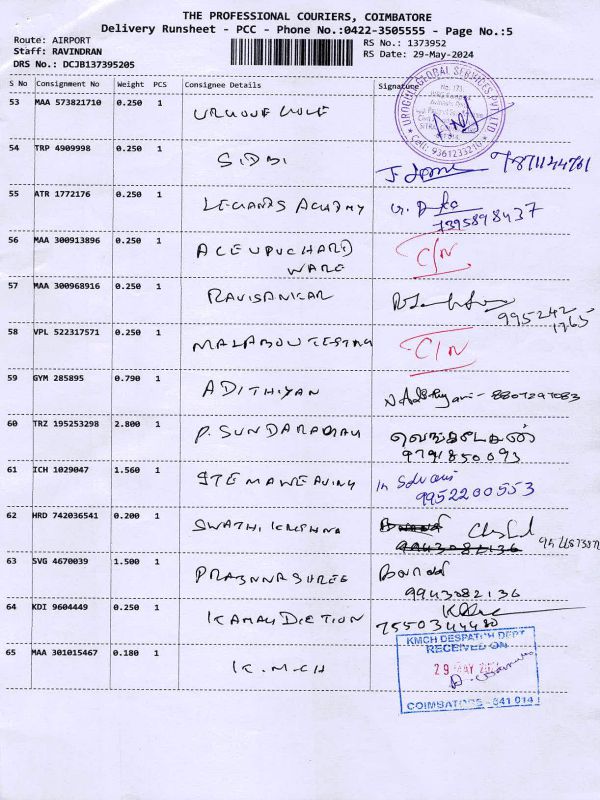 THE PROFESSIONAL COURIERS, COIMBATORE
Delivery Runsheet - PCC - Phone No.:0422-3505555 - Page No.:5
Route: AIRPORT
Staff: RAVINDRAN
DRS No.: DCJB137395205
RS No.: 1373952
RS Date: 29-May-2024
S No Consignment No Weight PCS Consignee Details Signature
53 MAA 573821710 0.250 1
UROGUE GLOBAL SERVICES PVT LTD
Cell: 9361233210
54 TRP 4909998 0.250 1 SIDBI
55 ATR 1772176 0.250 1 LEGANDS ACADMY
7395898437
56 MAA 300913896 0.250 1 ACEUPUCHARD C/N
WARE
57 MAA 300968916 0.250 1 RAVISANKAR
995242
1765
58 VPL 522317571 0.250 1 MALABOU TESTING C/N
59 GYM 285895 0.790 1 ADITHIYAN
60 TRZ 195253298 2.800 1 P. SUNDARAMAN வெங்கடேசன்
9791850093
61 ICH 1029047 1.560 1 STEMAWEAVING
9952200553
62 HRD 742036541 0.200 1 SWATHI KRISHNA
9943082136
63 SVG 4670039 1.500 1 PRASNNASUREE
9943082136
64 KDI 9604449 0.250 1 KAMAU DIETION
7550344480
65 MAA 301015467 0.180 1 K.M.C.H
KMCH DESPATCH DEPT
RECEIVED ON
29 MAY
COIMBATORE - 641 014